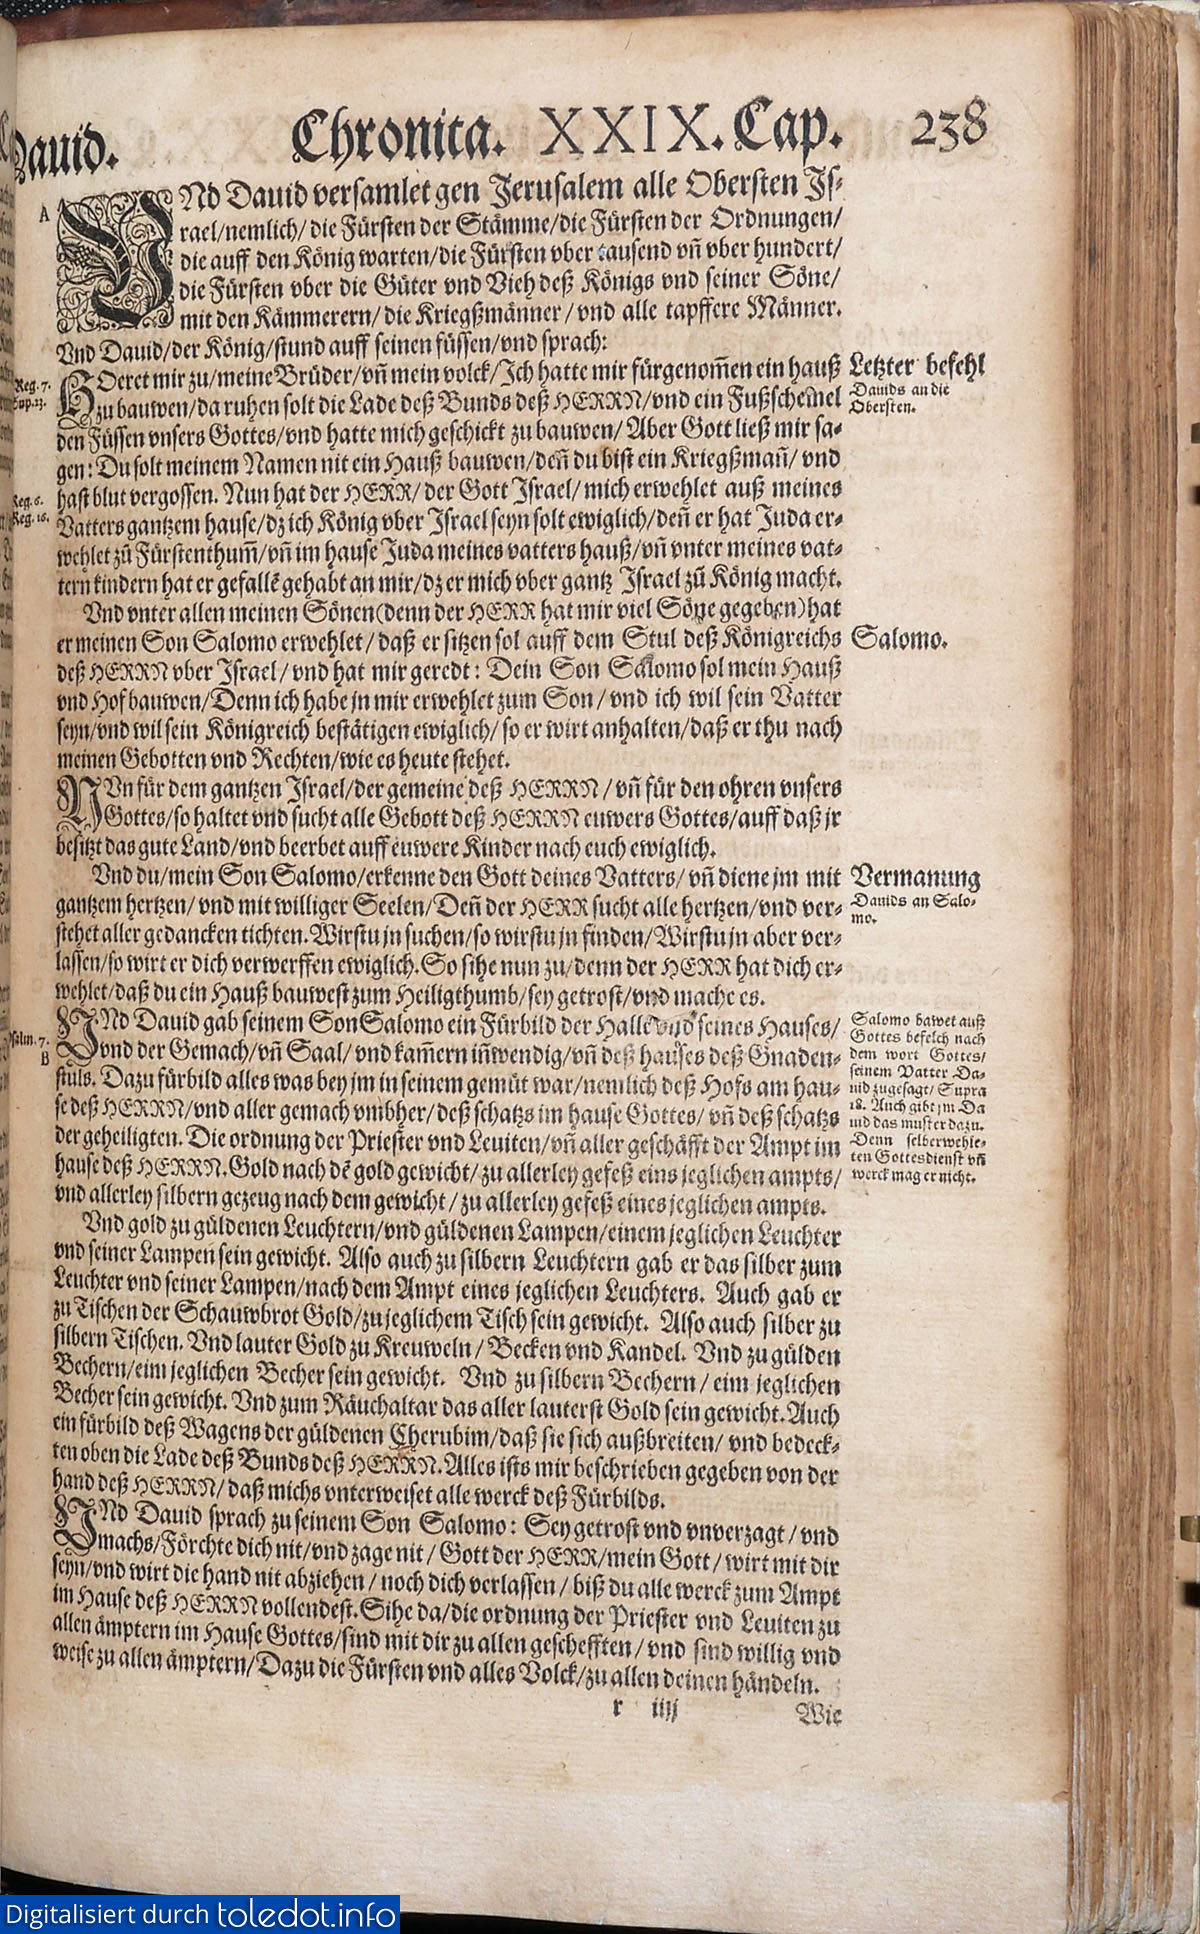 Dauid.
Chronica. XXIX. Cap.
238
A
VNd Dauid versamlet gen Jerusalem alle Obersten Js-
rael/nemlich/ die Fürsten der Stämme/die Fürsten der Ordnungen/
die auff den König warten/die Fürsten vber tausend vñ vber hundert/
die Fürsten vber die Güter vnd Vieh deß Königs vnd seiner Söne/
mit den Kämmerern/ die Kriegßmänner/ vnd alle tapffere Männer.
Vnd Dauid/der König/stund auff seinen füssen/vnd sprach:
HOeret mir zu/meine Brüder/vñ mein volck/Jch hatte mir fürgenom̃en ein hauß
zu bauwen/da ruhen solt die Lade deß Bunds deß HERRN/vnd ein Fußschemel
den Füssen vnsers Gottes/vnd hatte mich geschickt zu bauwen/ Aber Gott ließ mir sa-
gen: Du solt meinem Namen nit ein Hauß bauwen/deñ du bist ein Kriegßmañ/ vnd
hast blut vergossen. Nun hat der HERR/ der Gott Jsrael/ mich erwehlet auß meines
Vatters gantzem hause/dz ich König vber Jsrael seyn solt ewiglich/deñ er hat Juda er-
wehlet zũ Fürstenthum̃/vñ im hause Juda meines vatters hauß/vñ vnter meines vat-
tern kindern hat er gefallẽ gehabt an mir/dz er mich vber gantz Jsrael zũ König macht.
Vnd vnter allen meinen Sönen(denn der HERR hat mir viel Söne gegeben)hat
er meinen Son Salomo erwehlet/ daß er sitzen sol auff dem Stul deß Königreichs
deß HERRN vber Jsrael/ vnd hat mir geredt: Dein Son Salomo sol mein Hauß
vnd Hof bauwen/Denn ich habe jn mir erwehlet zum Son/ vnd ich wil sein Vatter
seyn/vnd wil sein Königreich bestätigen ewiglich/ so er wirt anhalten/daß er thu nach
meinen Gebotten vnd Rechten/wie es heute stehet.
NVn für dem gantzen Jsrael/der gemeine deß HERRN/ vñ für den ohren vnsers
Gottes/so haltet vnd sucht alle Gebott deß HERRN euwers Gottes/auff daß jr
besitzt das gute Land/vnd beerbet auff euwere Kinder nach euch ewiglich.
Vnd du/mein Son Salomo/erkenne den Gott deines Vatters/ vñ diene jm mit
gantzem hertzen/ vnd mit williger Seelen/ Deñ der HERR sucht alle hertzen/vnd ver-
stehet aller gedancken tichten. Wirstu jn suchen/so wirstu jn finden/Wirstu jn aber ver-
lassen/so wirt er dich verwerffen ewiglich. So sihe nun zu/denn der HERR hat dich er-
wehlet/daß du ein Hauß bauwest zum Heiligthumb/sey getrost/vnd mache es.
VNd Dauid gab seinem Son Salomo ein Fürbild der Halle vnd seines Hauses/
vnd der Gemach/vñ Saal/ vnd kam̃ern iñwendig/vñ deß hauses deß Gnaden-
stuls. Dazu fürbild alles was bey jm in seinem gemüt war/nemlich deß Hofs am hau-
se deß HERRN/vnd aller gemach vmbher/deß schatzs im hause Gottes/ vñ deß schatzs
der geheiligten. Die ordnung der Priester vnd Leuiten/vñ aller geschäfft der Ampt im
hause deß HERRN. Gold nach dẽ gold gewicht/zu allerley gefeß eins jeglichen ampts/
vnd allerley silbern gezeug nach dem gewicht/ zu allerley gefeß eines jeglichen ampts.
Vnd gold zu güldenen Leuchtern/vnd güldenen Lampen/einem jeglichen Leuchter
vnd seiner Lampen sein gewicht. Also auch zu silbern Leuchtern gab er das silber zum
Leuchter vnd seiner Lampen/nach dem Ampt eines jeglichen Leuchters. Auch gab er
zu Tischen der Schauwbrot Gold/zu jeglichem Tisch sein gewicht. Also auch silber zu
silbern Tischen. Vnd lauter Gold zu Kreuweln/ Becken vnd Kandel. Vnd zu gülden
Bechern/eim jeglichen Becher sein gewicht. Vnd zu silbern Bechern/ eim jeglichen
Becher sein gewicht. Vnd zum Räuchaltar das aller lauterst Gold sein gewicht. Auch
ein fürbild deß Wagens der güldenen Cherubim/daß sie sich außbreiten/ vnd bedeck-
ten oben die Lade deß Bunds deß HERRN. Alles ists mir beschrieben gegeben von der
hand deß HERRN/ daß michs vnterweiset alle werck deß Fürbilds.
VNd Dauid sprach zu seinem Son Salomo: Sey getrost vnd vnverzagt/ vnd
machs/Förchte dich nit/vnd zage nit/ Gott der HERR/mein Gott/ wirt mit dir
seyn/vnd wirt die hand nit abziehen/ noch dich verlassen/ biß du alle werck zum Ampt
im Hause deß HERRN vollendest. Sihe da/die ordnung der Priester vnd Leuiten zu
allen ämptern im Hause Gottes/sind mit dir zu allen geschefften/ vnd sind willig vnd
weise zu allen ämptern/Dazu die Fürsten vnd alles Volck/zu allen deinen händeln.
r iiij
Wie
Reg. 7.
Sup.23.
Reg. 6.
Reg. 16.
Psalm. 7.
B
Letzter befehl
Dauids an die
Obersten.
Salomo.
Vermanung
Dauids an Salo-
mo.
Salomo bawet auß
Gottes befelch nach
dem wort Gottes/
seinem Vatter Da-
uid zugesagt/ Supra
18. Auch gibt jm Da
uid das muster dazu.
Denn selberwehle-
ten Gottesdienst vñ
werck mag er nicht.
Digitalisiert durch toledot.info